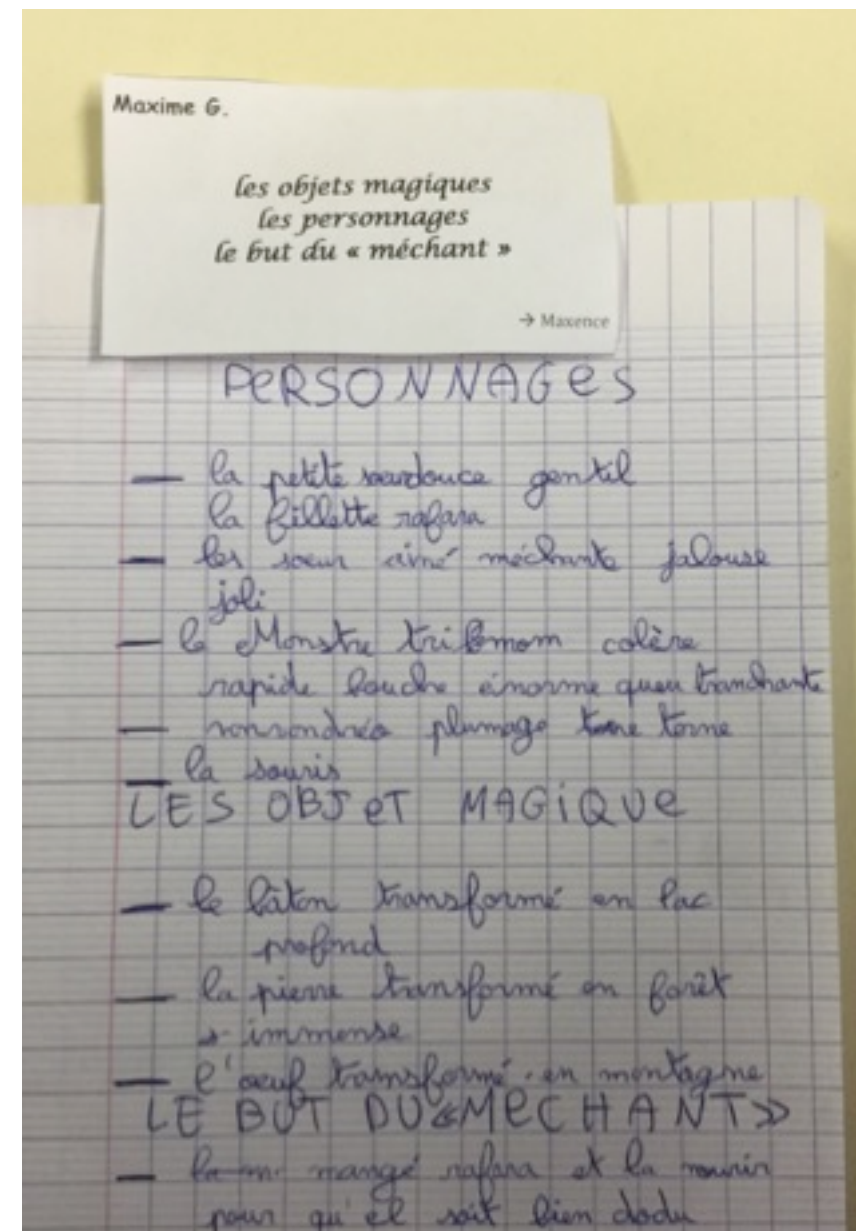 Maxime G.
les objets magiques
les personnages
le but du « méchant »
→ Maxence
PeRSONNAGeS
— la petite gentil
la fillette rafara
— les soeur ainé méchante jalouse
joli
— le Monstre colère
rapide louche énorme queu tranchante
— plumage terne
— la souris
LES OBJeT MAGiQUe
— le bâton transformé en lac
profond
— la pierre transformé en forêt
immense
— l'oeuf transformé en montagne
LE BUT DU «MeCHANT»
— mangé rafara et la nourir
pour qu'el soit bien dodu